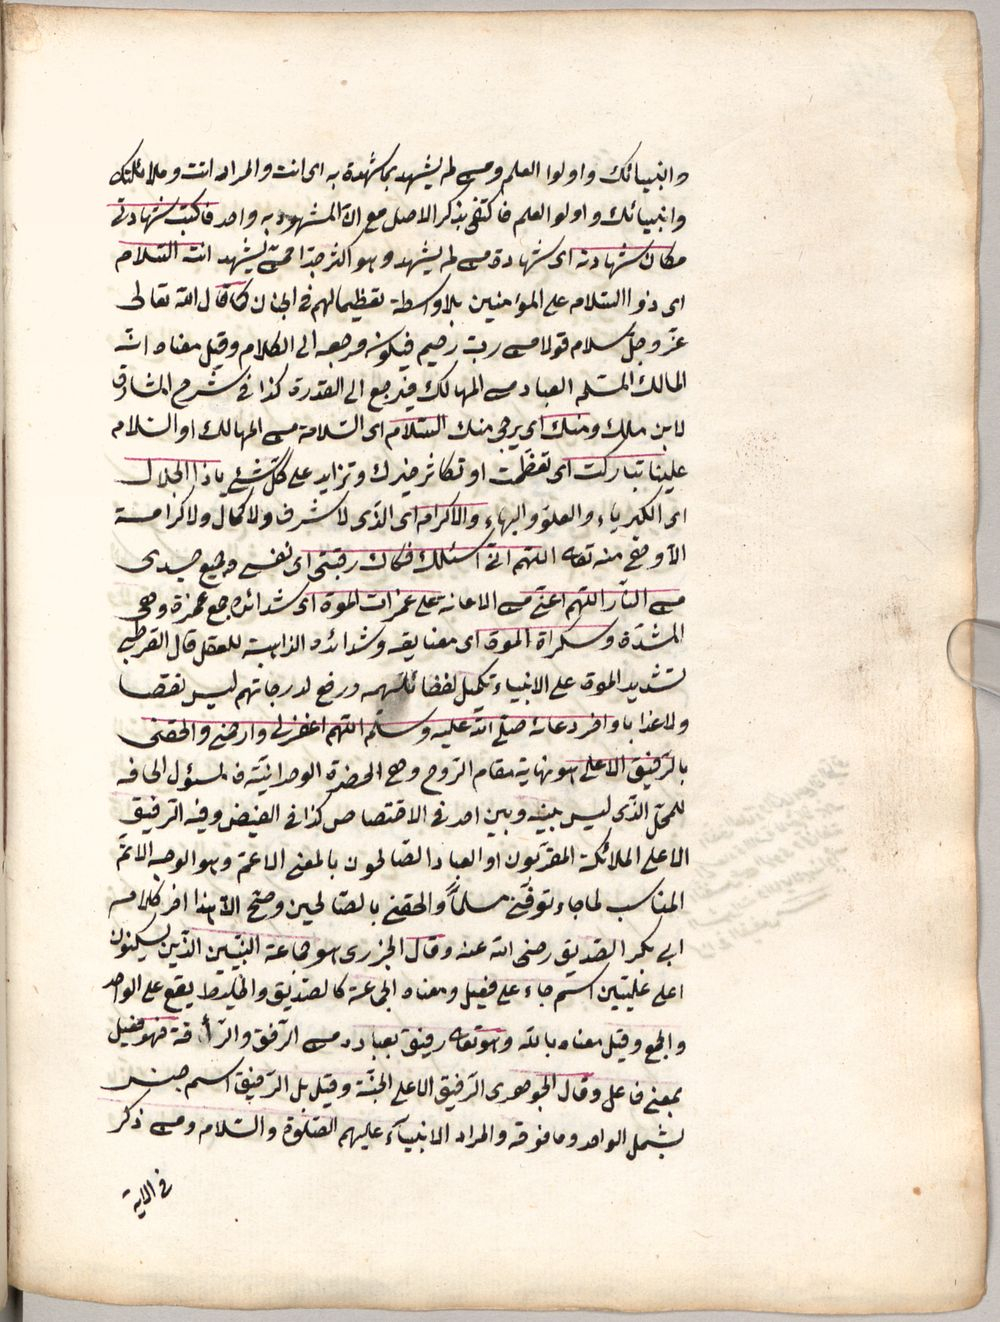 وانبيائك واولوا العلم ومن لم يشهد بما شهدت به اى انت والمراد انت وملائكتك
وانبيائك واولوا العلم فاكتفى بذكر الاصل مع ان المشهود به واحد فاكتب شهادتى
مكان شهادته اى شهادة من لم يشهد وهو اكثر جدا ممن يشهد انت السلام
اى ذو السلام على المؤمنين بلا واسطة تعظيما لهم فى الجنان كما قال الله تعالى
عز وجل سلام قولا من رب رحيم فيكون مرجعه الى الكلام وقيل معناه انه
المالك المسلم العباد من المهالك فيرجع الى القدرة كذا فى شرح المشارق
لابن ملك ومنك اى يرجى منك السلام اى السلامة من المهالك او السلام
علينا تباركت اى تعظمت او تكاثر خيرك وتزايد على كل شئ ياذا الجلال
اى الكبرياء والعلو والبهاء والاكرام اى الذى لا شرف ولا كمال ولا كرامة
الا وهى منه تعالى اللهم انى اسئلك فكاك رقبتى اى نفسى وجميع جسدى
من النار اللهم اعنى من الاعانة على غمرات الموت اى شدائده جمع غمرة وهى
الشدة وسكرات الموت اى مضايقه وشدائده الذاهبة للعقل قال القرطبى
تشديد الموت على الانبياء تكميل لفضائلهم ورفع لدرجاتهم ليس نقصا
ولا عذابا واخر دعائه صلى الله عليه وسلم اللهم اغفر لى وارحمنى والحقنى
بالرفيق الاعلى هو نهاية مقام الروح وهى الحضرة الوحدانية فالمسؤل الحاقه
للمحل الذى ليس بينه وبين احد فى الاختصاص كذا فى الفيض وفيه الرفيق
الاعلى الملائكة المقربون او العباد الصالحون بالمعنى الاعم وهو الوجه الاتم
المناسب لما جاء توفنى مسلما والحقنى بالصالحين وصح ان هذا اخر كلام
ابى بكر الصديق رضى الله عنه وقال الجزرى هو جماعة النبيين الذين يسكنون
اعلى عليين اسم جاء على فعيل ومعناه الجماعة كالصديق والخليط يقع على الواحد
والجمع وقيل معناه بالله وهو تعالى رفيق بعباده من الرفق والرأفة فهو فعيل
بمعنى فاعل وقال الجوهرى الرفيق الاعلى الجنة وقيل بل الرفيق اسم جنس
يشمل الواحد وما فوقه والمراد الانبياء عليهم الصلوة والسلام ومن ذكر
فى الاية